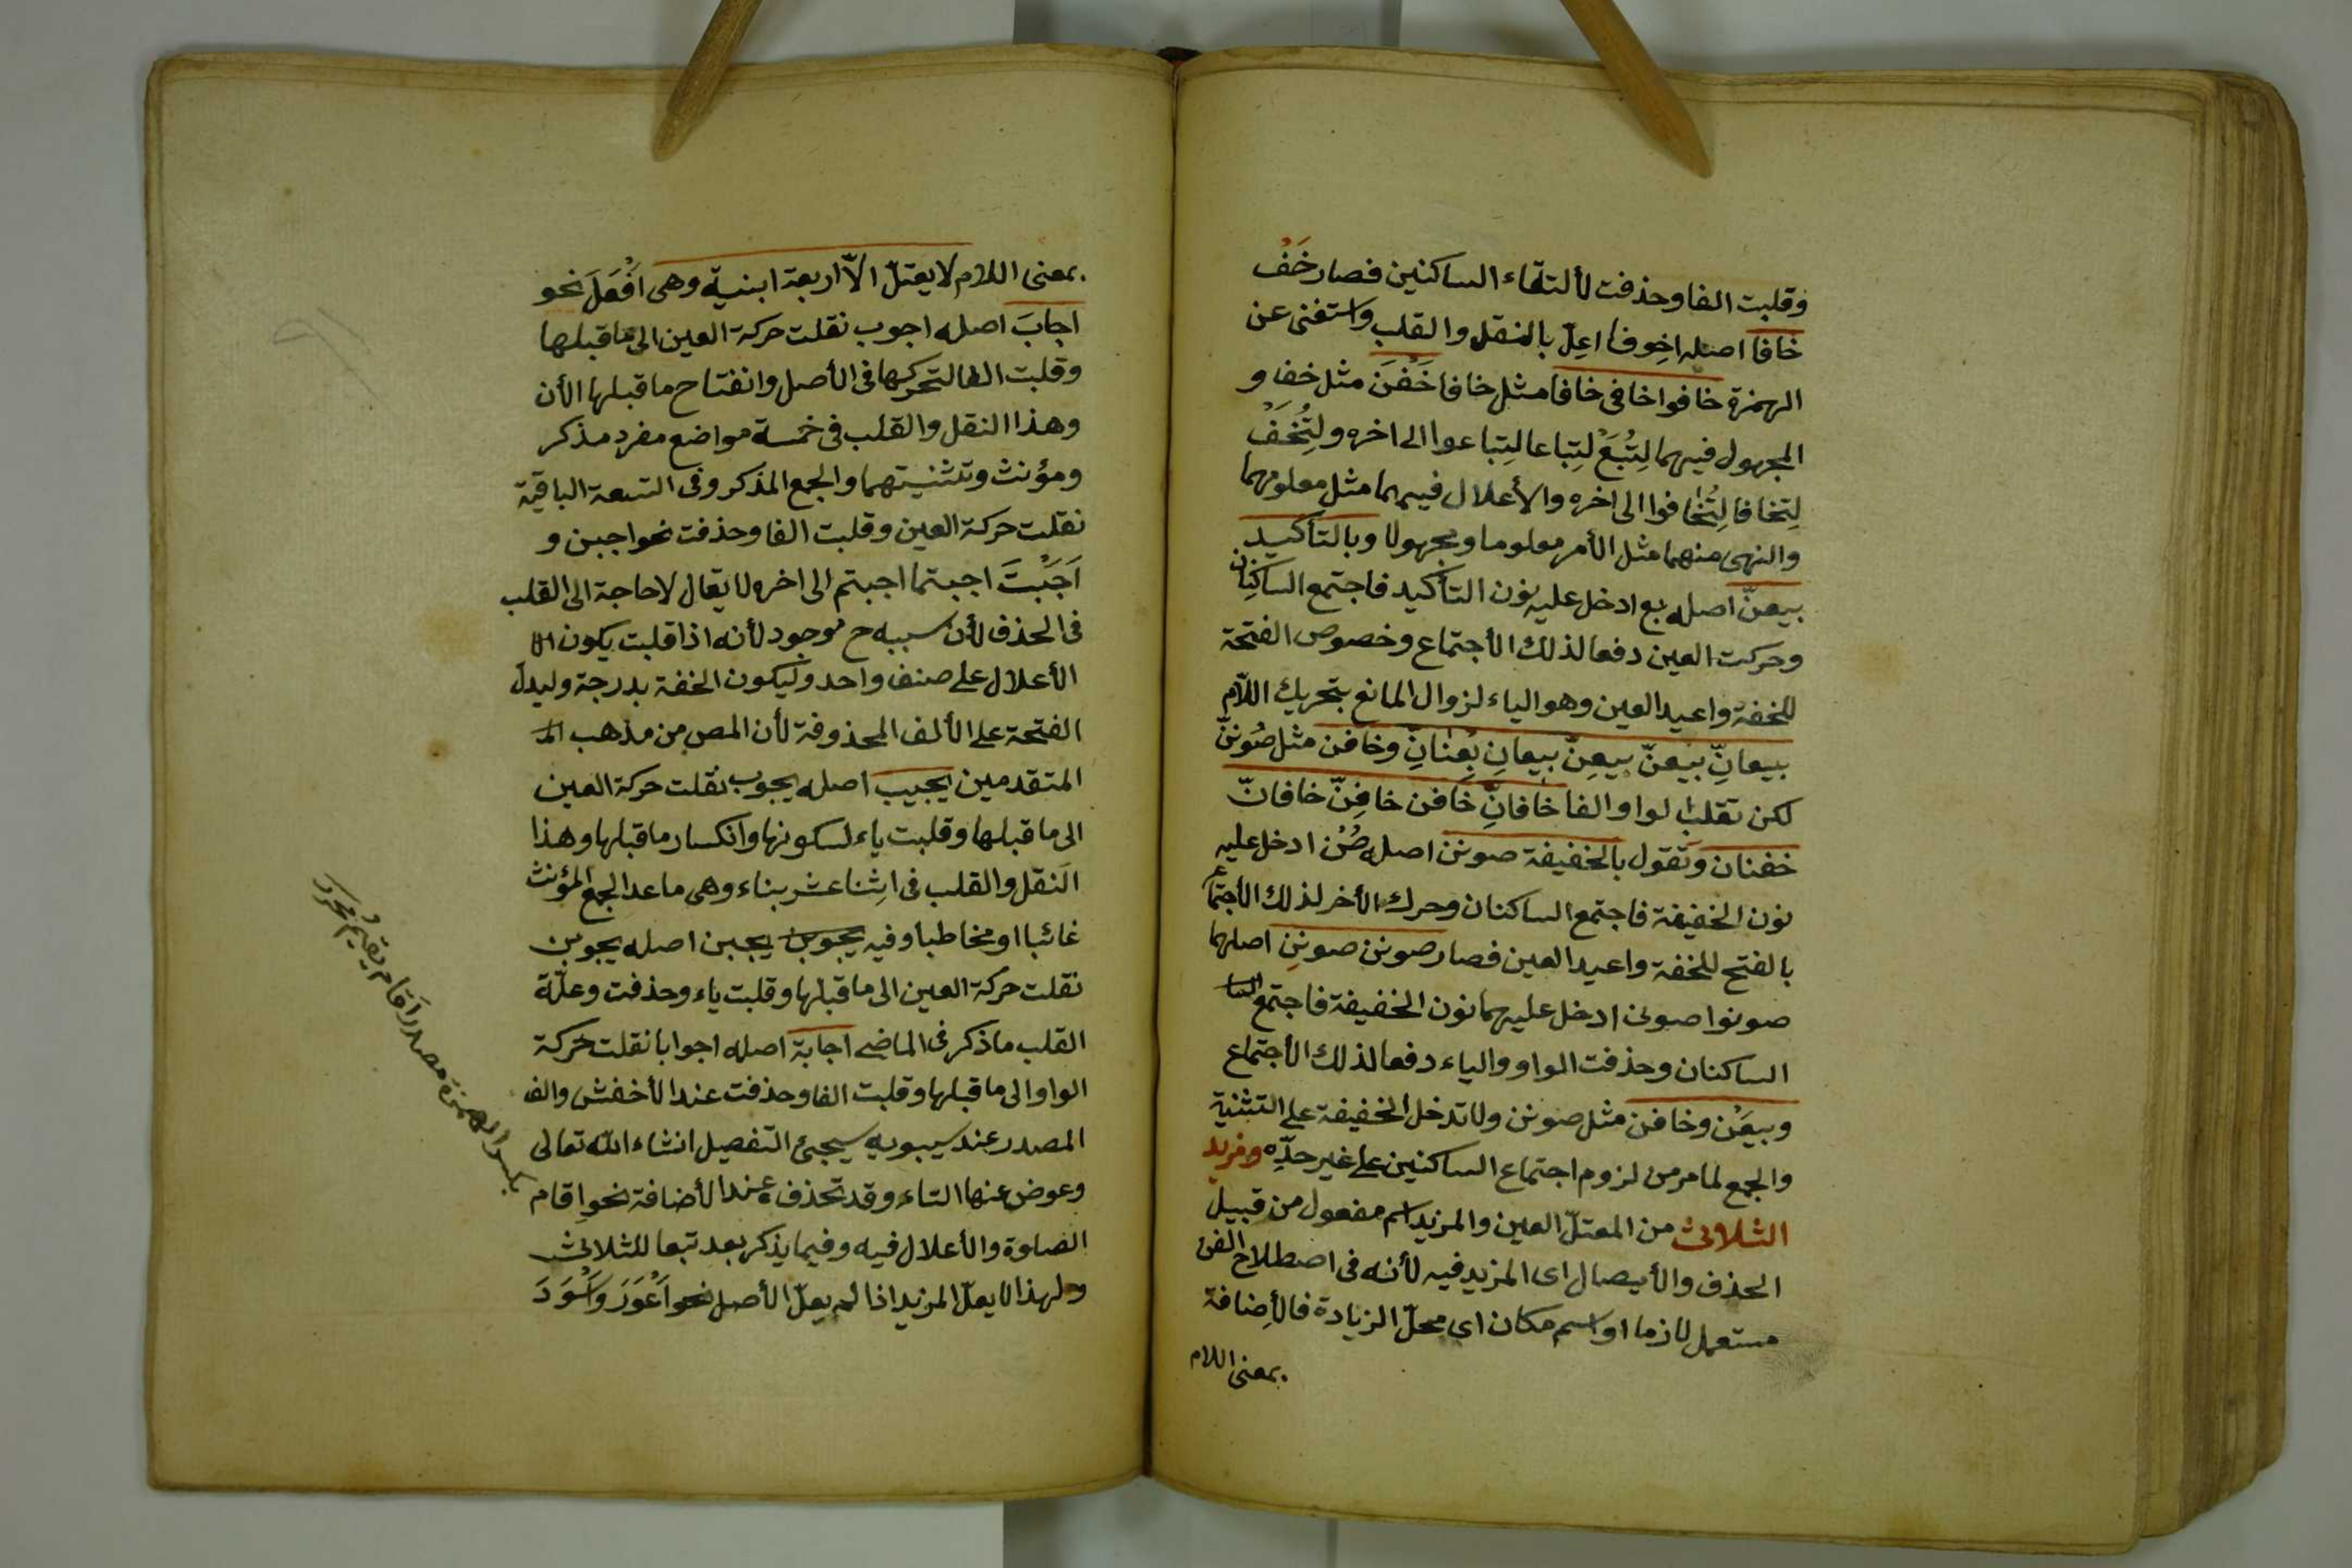 وقلبت الفا وحذفت لألتقاء الساكنين فصار خَفْ
خافا اصله اخوفا اعِلّ بالنقل والقلب واستغنى عن
الهمزة خافوا خافى خافا مثل خافا خَفْنَ مثل خف و
المجهول فيهما لِتُبَعْ لِتباعا لِتباعوا الى اخره ولِتُخَفْ
لِتخافا لِتُخافوا الى اخره والأعلال فيهما مثل معلومهما
والنهى منهما مثل الأمر معلوما ومجهولا وبالتأكيد
بيعنّ اصله بع ادخل عليه نون التأكيد فاجتمع الساكنان
وحركت العين دفعا لذلك الأجتماع وخصوص الفتحة
للخفة واعيد العين وهو الياء لزوال المانع بتحريك اللّام
بيعانِّ بيعنّ بيعِنّ بيعانِ بِعْنانِّ وخافن مثل صُوننّ
لكن تقلب الواو الفا خافانِّ خافن خافِنّ خافانّ
خفنان وتقول بالخفيفة صونن اصله صُنْ ادخل عليه
نون الخفيفة فاجتمع الساكنان وحرك الأخر لذلك الأجتماع
بالفتح للخفة واعيد العين فصار صونن صوننِ اصلهما
صونوا صونى ادخل عليهما نون الخفيفة فاجتمع السا
الساكنان وحذفت الواو والياء دفعا لذلك الأجتماع
وبيعَن وخافن مثل صونن ولا تدخل الخفيفة على التثنية
والجمع لما مر من لزوم اجتماع الساكنين على غير حدّه ومزيد
الثلاثى من المعتلّ العين والمزيد اسم مفعول من قبيل
الحذف والأيصال اى المزيد فيه لأنه فى اصطلاح الفن
مستعمل لازما او اسم مكان اى محلّ الزيادة فالأِضافة
بمعنى اللام
بمعنى اللام لا يعتلّ الاّ اربعة ابنية وهى اَفْعَلَ نحو
اجابَ اصله اجوب نقلت حركة العين الى ما قبلها
وقلبت الفا لتحركها فى الأصل وانفتاح ما قبلها الأن
وهذا النقل والقلب فى خمسة مواضع مفرد مذكر
ومؤنث وتثنيتهما والجمع المذكر وفى التسعة الباقية
نقلت حركة العين وقلبت الفا وحذفت نحو اجبن و
اَجَبْتَ اجبتما اجبتم الى اخره لا يقال لا حاجة الى القلب
فى الحذف لأن سببه ح موجود لأنه اذا قلبت يكون
الأعلال على صنف واحد وليكون الخفة بدرجة وليدلّ
الفتحة على الألف المحذوفة لأن المص من مذهب المـ
المتقدمين يجيب اصله يجوب نقلت حركة العين
الى ما قبلها وقلبت ياء لسكونها وانكسار ما قبلها وهذا
النقل والقلب فى اِثنا عشر بناء وهى ما عدا الجمع المؤنث
غائبا او مخاطبا وفيه يجوبن يجبن اصله يجوبن
نقلت حركة العين الى ما قبلها وقلبت ياء وحذفت وعلّة
القلب ما ذكر فى الماضى اجابة اصله اجوابا نقلت حركة
الواو الى ما قبلها وقلبت الفا وحذفت عند الأخفش والف
المصدر عند سيبويه سيجئ التفصيل انشاء الله تعالى
وعوض عنها التاء وقد تحذف عند الأضافة نحو اِقام
الصلوة والأعلال فيه وفيما يذكر بعد تبعا للثلاثى
ولهذا لا يعلّ المزيد اذا لم يعلّ الأصل نحو اَعْوَرَ واَسْوَدَ
بكسر الهمزة مصدر اَقام يقيم محرر